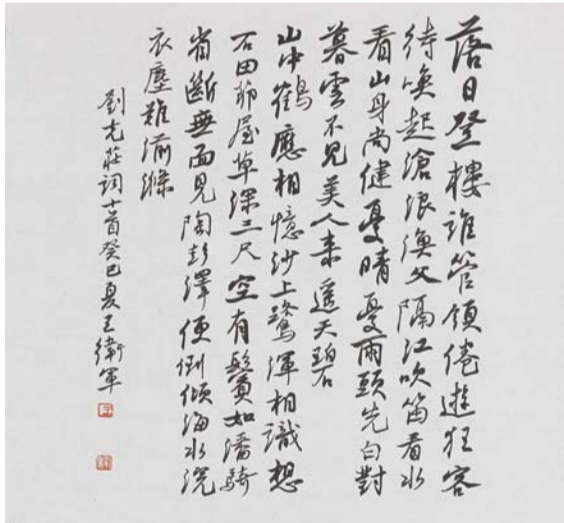 落日登樓誰管領倦遊狂客
待喚起滄浪漁父隔江吹笛看水
看山身尚健憂晴憂雨頭先白對
暮雲不見美人来遥天碧
山中鶴應相憶沙上鷺渾相識想
石田茆屋草深三尺空有鬢如潘騎
省斷無面見陶彭澤便倒傾海水浣
衣塵難湔滌
劉克莊詞十首癸巳夏王衛軍